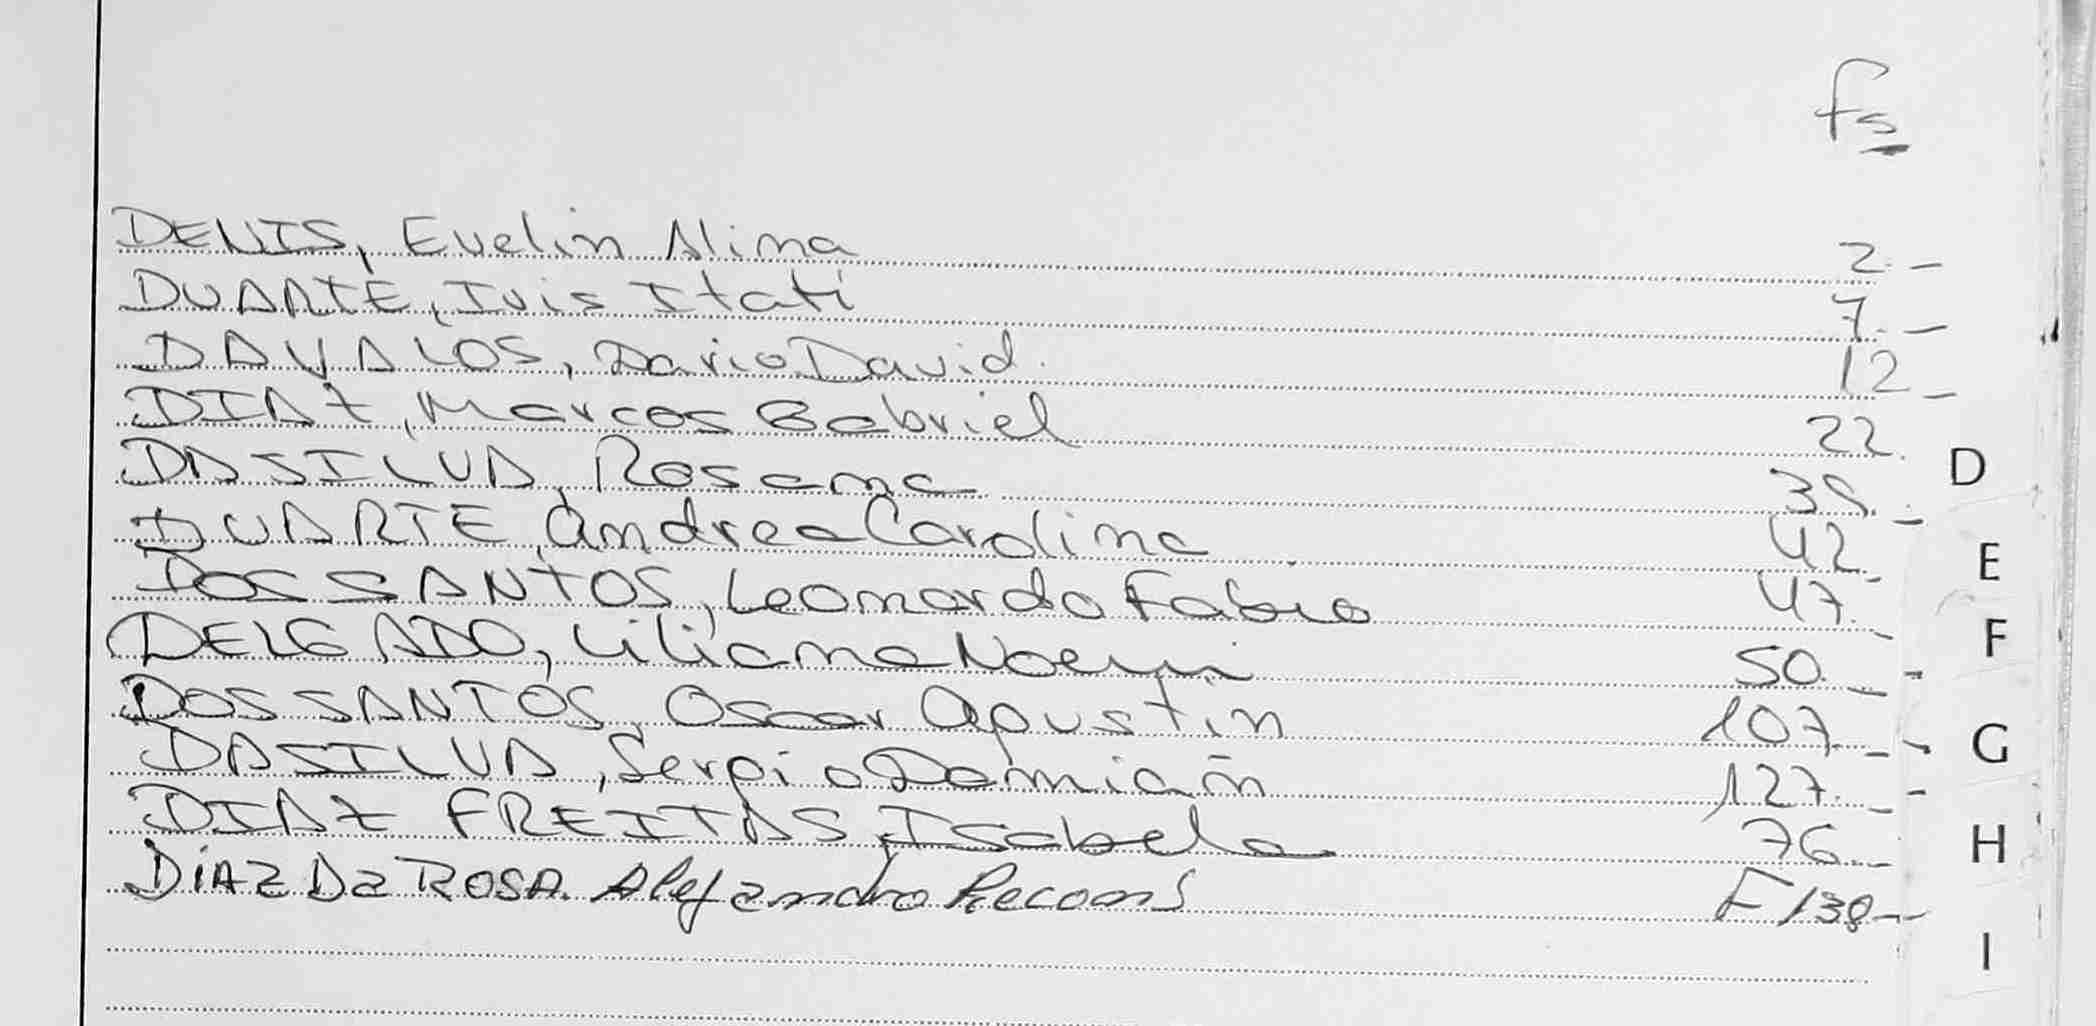 fs
DENIS, Evelin Alina 2.-
DUARTE, Ivis Itatí 7.-
DAVALOS, Dario David. 12-
DIAZ, Marcos Gabriel 22.
DASILVA, Rosana 35.-
DUARTE, Andrea Carolina 42.-
DOS SANTOS, Leonardo Fabio 47.-
DELGADO, Liliana Noemi 50.-
DOS SANTOS, Oscar Agustín 107.-
DASILVA, Sergio Damián 127.-
DIAZ FREITAS, Isabela 76.-
DIAZ Da ROSA. Alejandro F 138-
D
E
F
G
H
I